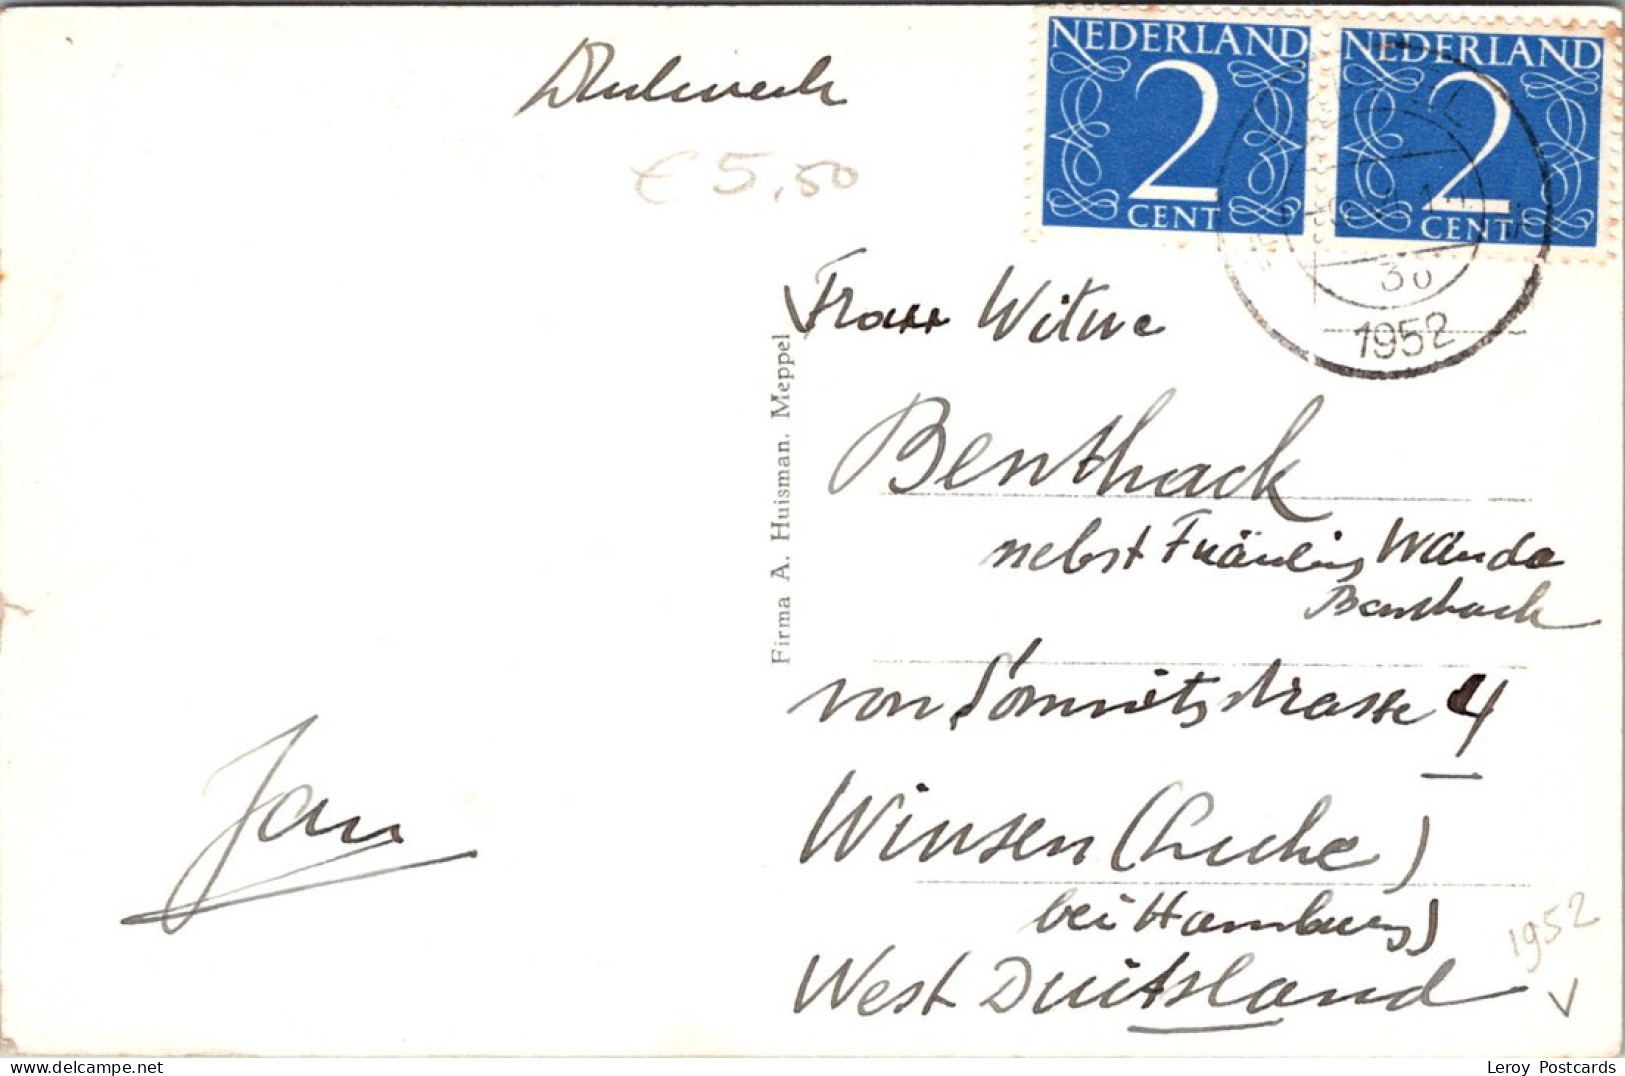 Drukwerk
€ 5,50
NEDERLAND
2
CENT
NEDERLAND
2
CENT
1952
Firma A. Huisman. Meppel
Frau Witwe
Benthack
nebst Fräulein Wanda
Benthack
von Sömnitzstrasse 4
Winsen (Luhe)
bei Hamburg)
West Duitsland
Jan
1952
Leroy Postcards